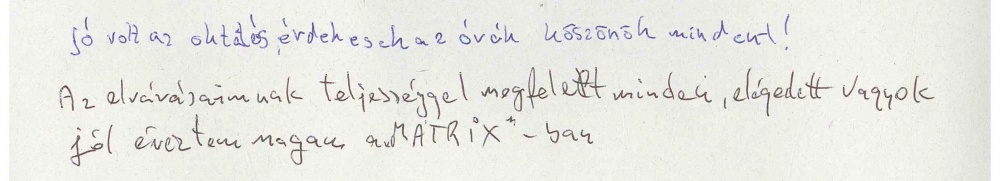 jó volt az oktatás, érdekesek az órák köszönök mindent!
Az elvárásaimnak teljességgel megfelelt minden, elégedett vagyok
jól éreztem magam a „MATRiX"-ban